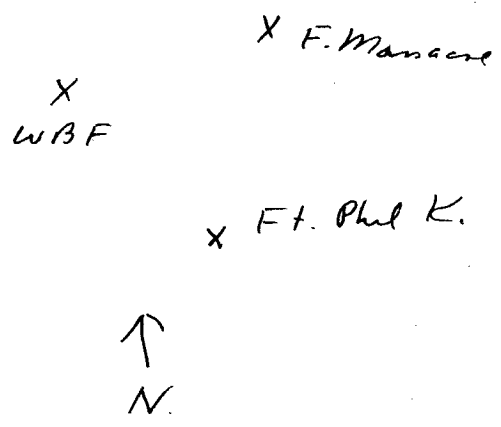 X F. Massacre
X
WBF
X Ft. Phil K.
N.